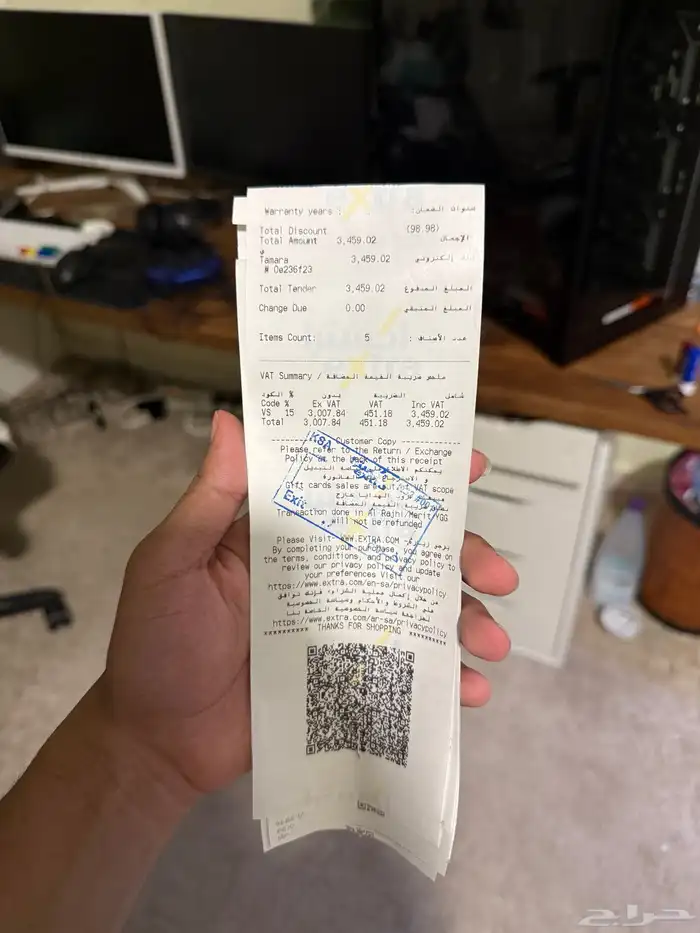 Warranty years : سنوات الضمان:
Total Discount (98.98)
Total Amount 3,459.02 الإجمالي
Tamara 3,459.02 إلكتروني
# 0e236f23
Total Tender 3,459.02 المبلغ المدفوع
Change Due 0.00 المبلغ المتبقي
Items Count: 5 عدد الأصناف :
VAT Summary / ملخص ضريبة القيمة المضافة
الكود % بدون الضريبة شامل
Code % Ex VAT VAT Inc VAT
VS 15 3,007.84 451.18 3,459.02
Total 3,007.84 451.18 3,459.02
Customer Copy
Please refer to the Return / Exchange
Policy on the back of this receipt
KSA
Exit
Gift cards sales are out of VAT scope
Transaction done in Al Rajhi/Merit YGG
will not be refunded
Please Visit- WWW.EXTRA.COM
By completing your purchase, you agree on
the terms, conditions, and privacy policy to
review our privacy policy and update
your preferences Visit our
https://www.extra.com/en-sa/privacypolicy
من خلال إكمال عملية الشراء، فإنك توافق
على الشروط والأحكام وسياسة الخصوصية
لمراجعة سياسة الخصوصية الخاصة بنا
https://www.extra.com/ar-sa/privacypolicy
********** THANKS FOR SHOPPING **********
حراج